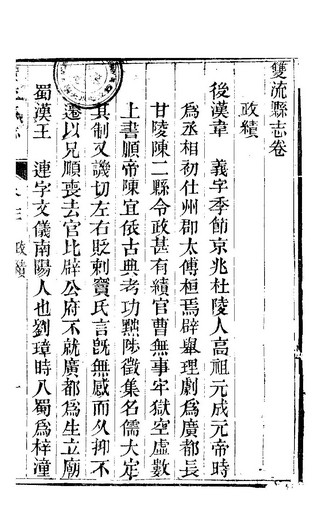 雙流縣志卷
政績
後漢韋　義字季節京兆杜陵人高祖元成元帝時
為丞相初仕州郡太傅桓焉辟舉理劇為廣都長
甘陵陳二縣令政甚有績官曹無事牢獄空虛數
上書順帝陳宜依古典考功黜陟徵集名儒大定
其制又譏切左右貶刺竇氏言既無感而久抑不
遷以兄順喪去官比辟公府不就廣都為生立廟
蜀漢王　連字文儀南陽人也劉璋時入蜀為梓潼
政績